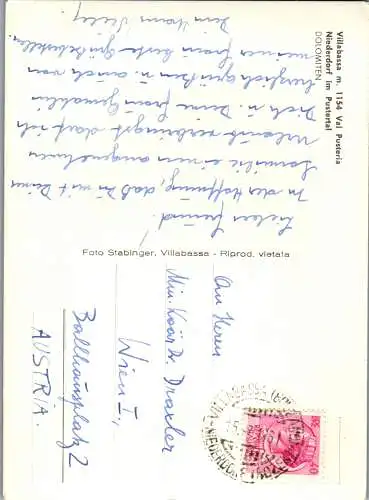 Villabassa m. 1154 Val Pusteria
Niederdorf im Pustertal
DOLOMITEN
Lieber Freund!
In der Hoffnung, daß Du mit Deiner
Familie einen angenehmen
Urlaub verbringst darf ich
Dich u. Deine Frau Gemahlin
herzlich grüßen u. auch von
meiner Frau beste Grüße bestellen.
Dein
Foto Stabinger, Villabassa - Riprod. vietata
An Herrn
Min. Koär Dr. Draxler
Wien I.,
Ballhausplatz 2
AUSTRIA.
VILLABASSA
NIEDERDORF